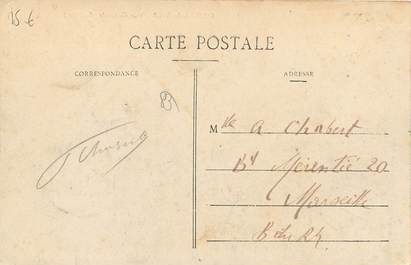 15 €
CARTE POSTALE
CORRESPONDANCE
ADRESSE
83
Mlle A Chabert
Bd Merentié 20
Marseille
B du Rh